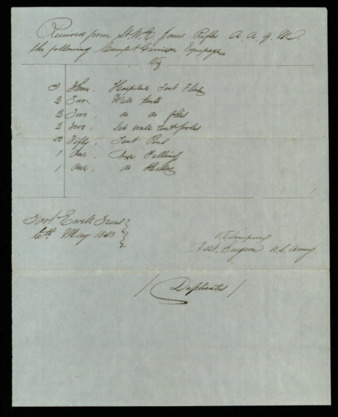 Received from Lt. Wm E. Jones Rifles A. A. Q. M.
the following Camp & Garrison Equipage
Viz
3 Three. Hospital Tent Flies
2 Two. Wall tents
2 Two. do do flies
2 two. Sets wall tent poles
50 Fifty. Tent Pins
1 One. Axe Helling
1 one. do
Fort Ewell Texas
6th May 1853
Asst. Surgeon U.S. Army
(Duplicates)